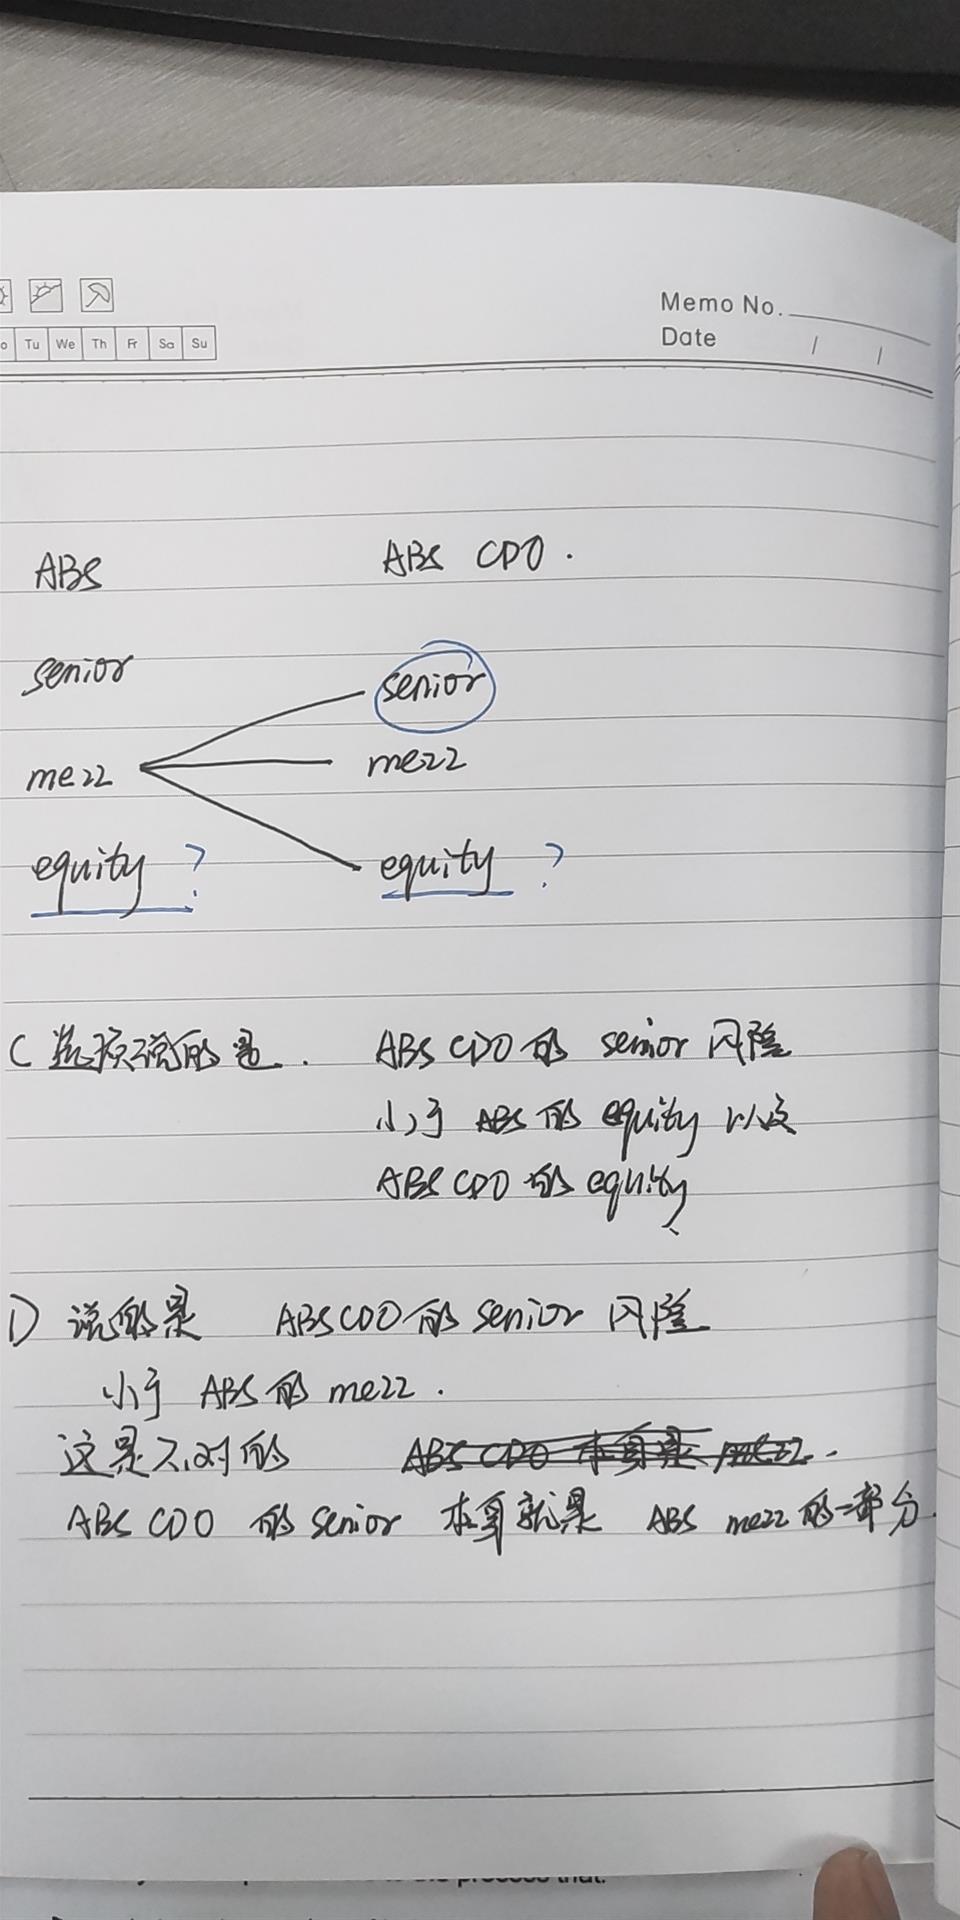 Memo No.
Date / /
Tu We Th Fr Sa Su
ABS ABS CDO .
senior senior
mezz mezz
equity ? equity ?
C 选项说的是 . ABS CDO 的 senior 风险
小于 ABS 的 equity 以及
ABS CDO 的 equity
D 说的是 ABS CDO 的 senior 风险
小于 ABS 的 mezz .
这是不对的 ABS CDO 本身是 mezz .
ABS CDO 的 senior 本身就是 ABS mezz 的一部分 .
the process that.